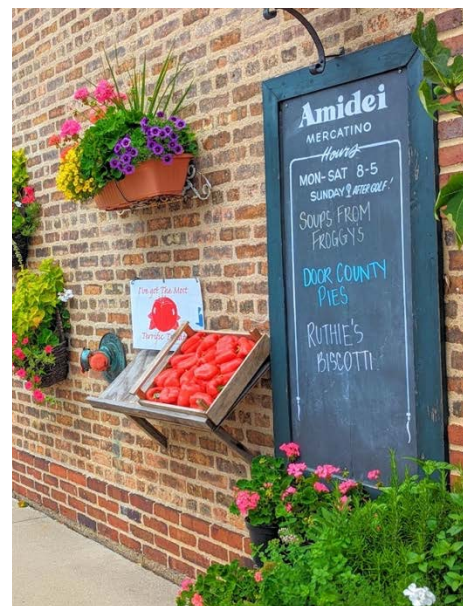 Amidei
MERCATINO
Hours
MON-SAT 8-5
SUNDAY AFTER GOLF!
SOUPS FROM
FROGGYS
DOOR COUNTY
PIES
RUTHIE'S
BISCOTTI
I'm got The Most
Terrific